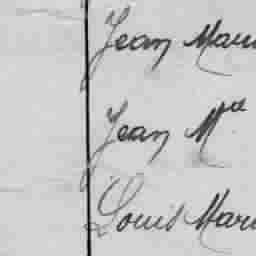 Jean Mari
Jean Mie
Louis Mari